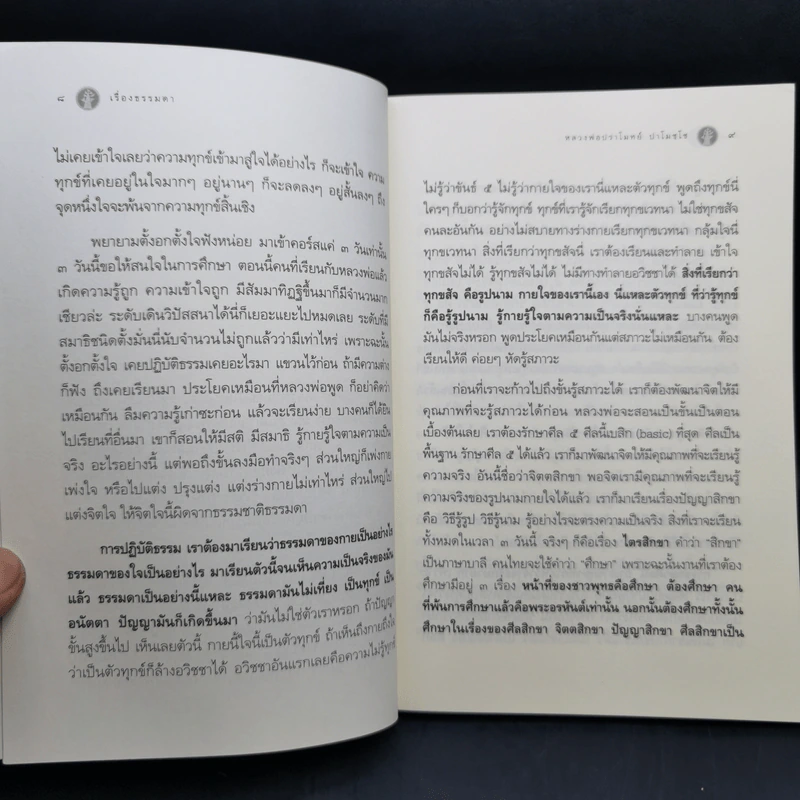 ๘ เรื่องธรรมดา
ไม่เคยเข้าใจเลยว่าความทุกข์เข้ามาสู่ใจได้อย่างไร ก็จะเข้าใจ ความ
ทุกข์ที่เคยอยู่ในใจมากๆ อยู่นานๆ ก็จะลดลงๆ อยู่สั้นลงๆ ถึง
จุดหนึ่งใจจะพ้นจากความทุกข์สิ้นเชิง
พยายามตั้งอกตั้งใจฟังหน่อย มาเข้าคอร์สแค่ ๓ วันเท่านั้น
๓ วันนี้ขอให้สนใจในการศึกษา ตอนนี้คนที่เรียนกับหลวงพ่อแล้ว
เกิดความรู้ถูก ความเข้าใจถูก มีสัมมาทิฏฐิขึ้นมาก็มีจำนวนมาก
เชียวล่ะ ระดับเดินวิปัสสนาได้นี่ก็เยอะแยะไปหมดเลย ระดับที่มี
สมาธิชนิดตั้งมั่นนี่นับจำนวนไม่ถูกแล้วว่ามีเท่าไหร่ เพราะฉะนั้น
ตั้งอกตั้งใจ เคยปฏิบัติธรรมเคยอะไรมา แขวนไว้ก่อน ถ้ามีความต่าง
ก็ฟัง ถึงเคยเรียนมา ประโยคเหมือนที่หลวงพ่อพูด ก็อย่าคิดว่า
เหมือนกัน ลืมความรู้เก่าซะก่อน แล้วจะเรียนง่าย บางคนก็ได้ยิน
ไปเรียนที่อื่นมา เขาก็สอนให้มีสติ มีสมาธิ รู้กายรู้ใจตามความเป็น
จริง อะไรอย่างนี้ แต่พอถึงขั้นลงมือทำจริงๆ ส่วนใหญ่ก็เพ่งกาย
เพ่งใจ หรือไปแต่ง ปรุงแต่ง แต่งร่างกายไม่เท่าไหร่ ส่วนใหญ่ไป
แต่งจิตใจ ให้จิตใจนี้ผิดจากธรรมชาติธรรมดา
การปฏิบัติธรรม เราต้องมาเรียนว่าธรรมดาของกายเป็นอย่างไร
ธรรมดาของใจเป็นอย่างไร มาเรียนตัวนี้จนเห็นความเป็นจริงของมัน
แล้ว ธรรมดาเป็นอย่างนี้แหละ ธรรมดามันไม่เที่ยง เป็นทุกข์ เป็น
อนัตตา ปัญญามันก็เกิดขึ้นมา ว่ามันไม่ใช่ตัวเราหรอก ถ้าปัญญา
ขั้นสูงขึ้นไป เห็นเลยตัวนี้ กายนี้ใจนี้เป็นตัวทุกข์ ถ้าเห็นถึงกายถึงใจ
ว่าเป็นตัวทุกข์ก็ล้างอวิชชาได้ อวิชชาอันแรกเลยคือความไม่รู้ทุกข์
หลวงพ่อปราโมทย์ ปาโมชฺโช ๙
ไม่รู้ว่าขันธ์ ๕ ไม่รู้ว่ากายใจของเรานี่แหละตัวทุกข์ พูดถึงทุกข์นี่
ใครๆ ก็บอกว่ารู้จักทุกข์ ทุกข์ที่เรารู้จักเรียกทุกขเวทนา ไม่ใช่ทุกขสัจ
คนละอันกัน อย่างไม่สบายทางร่างกายเรียกทุกขเวทนา กลุ้มใจนี่
ทุกขเวทนา สิ่งที่เรียกว่าทุกขสัจนี่ เราต้องเรียนและทำลาย เข้าใจ
ทุกขสัจไม่ได้ รู้ทุกขสัจไม่ได้ ไม่มีทางทำลายอวิชชาได้ สิ่งที่เรียกว่า
ทุกขสัจ คือรูปนาม กายใจของเรานี้เอง นี่แหละตัวทุกข์ ที่ว่ารู้ทุกข์
ก็คือรู้รูปนาม รู้กายรู้ใจตามความเป็นจริงนั่นแหละ บางคนพูด
มันไม่จริงหรอก พูดประโยคเหมือนกันแต่สภาวะไม่เหมือนกัน ต้อง
เรียนให้ดี ค่อยๆ หัดรู้สภาวะ
ก่อนที่เราจะก้าวไปถึงขั้นรู้สภาวะได้ เราก็ต้องพัฒนาจิตให้มี
คุณภาพที่จะรู้สภาวะได้ก่อน หลวงพ่อจะสอนเป็นขั้นเป็นตอน
เบื้องต้นเลย เราต้องรักษาศีล ๕ ศีลนี้เบสิก (basic) ที่สุด ศีลเป็น
พื้นฐาน รักษาศีล ๕ ได้แล้ว เราก็มาพัฒนาจิตให้มีคุณภาพที่จะเรียนรู้
ความจริง อันนี้ชื่อว่าจิตตสิกขา พอจิตเรามีคุณภาพที่จะเรียนรู้
ความจริงของรูปนามกายใจได้แล้ว เราก็มาเรียนเรื่องปัญญาสิกขา
คือ วิธีรู้รูป วิธีรู้นาม รู้อย่างไรจะตรงความเป็นจริง สิ่งที่เราจะเรียน
ทั้งหมดในเวลา ๓ วันนี้ จริงๆ ก็คือเรื่อง ไตรสิกขา คำว่า “สิกขา”
เป็นภาษาบาลี คนไทยจะใช้คำว่า “ศึกษา” เพราะฉะนั้นงานที่เราต้อง
ศึกษามีอยู่ ๓ เรื่อง หน้าที่ของชาวพุทธคือศึกษา ต้องศึกษา คน
ที่พ้นการศึกษาแล้วคือพระอรหันต์เท่านั้น นอกนั้นต้องศึกษาทั้งนั้น
ศึกษาในเรื่องของศีลสิกขา จิตตสิกขา ปัญญาสิกขา ศีลสิกขาเป็น